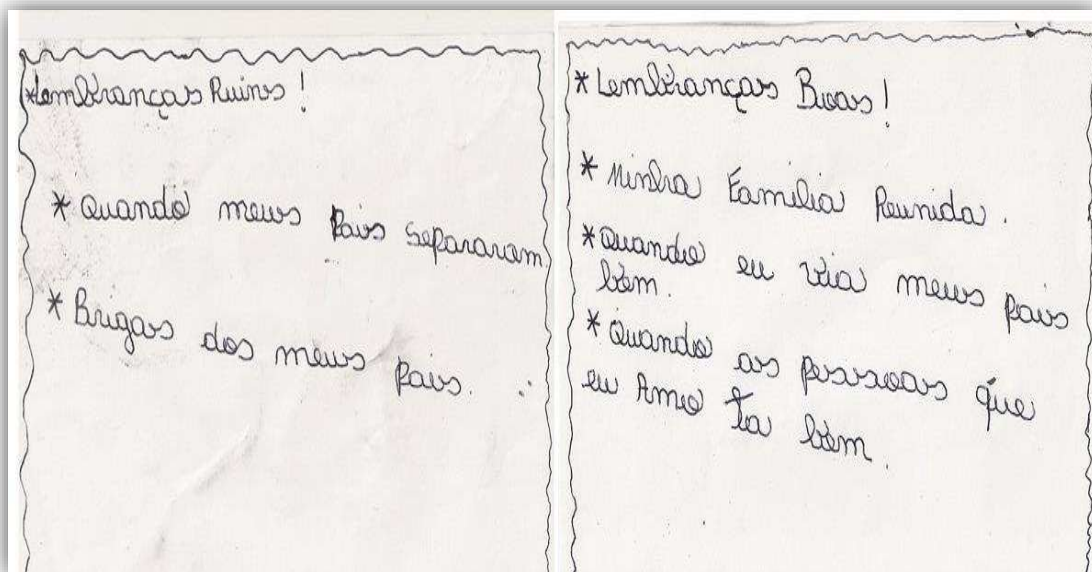 *Lembranças Ruins!
* Quando meus pais separaram
* Brigas dos meus pais.
* Lembranças Boas!
* Minha Família Reunida.
* Quando eu via meus pais
bem.
* Quando as pessoas que
eu Amo ta bem.